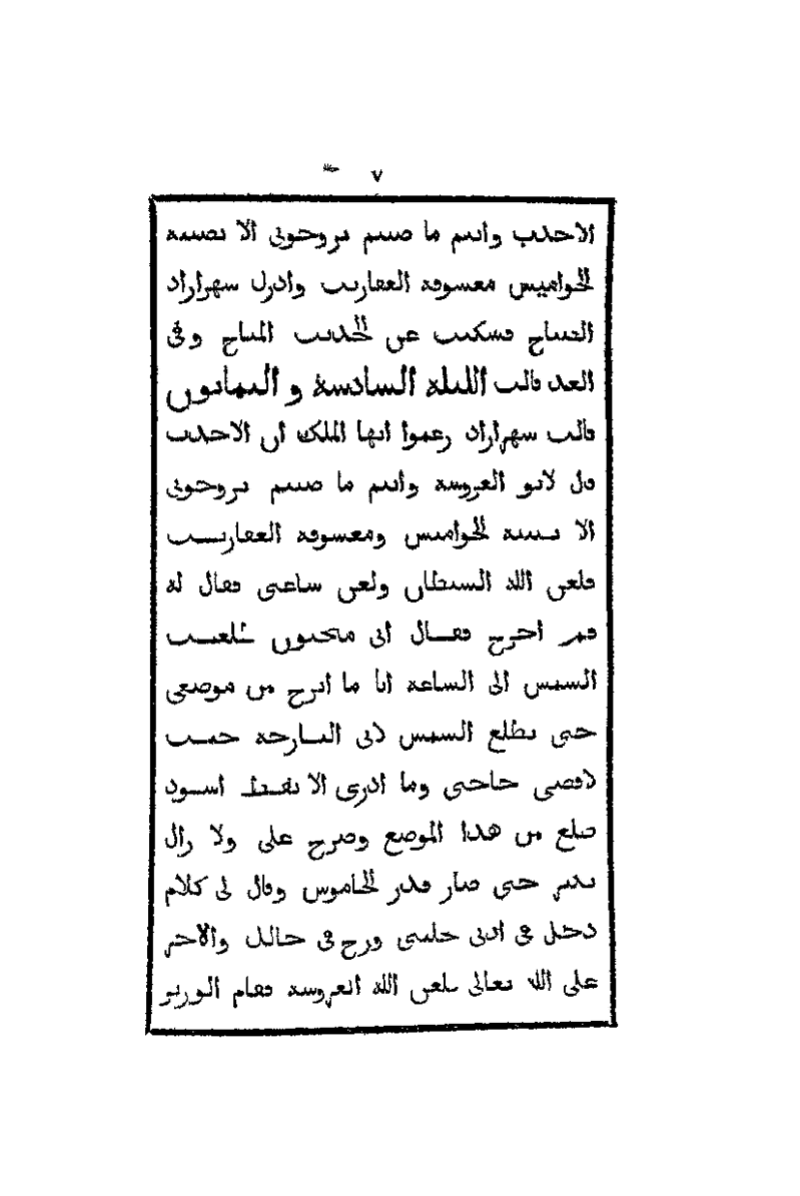 ٧
الاحدب وانتم ما صبتم تزوجوني الا بصبية
الجواميس معشوقة العفاريت وادرك شهرازاد
الصباح فسكتت عن الحديث المباح وفي
الغد قالت الليلة السادسة و الثمانون
قالت شهرازاد زعموا ايها الملك ان الاحدب
قال لابو العروسة وانتم ما صبتم تزوجوني
الا بسته الجواميس ومعشوقة العفاريت
فلعن الله الشيطان ولعن ساعتي فقال له
قم اخرج فقال اني مجنون تطلعت
الشمس الى الساعة انا ما ابرح من موضعي
حتى يطلع الشمس لاني البارحة جيت
لاقضي حاجتي وما ادري الا بقط اسود
طلع من هذا الموضع وصرخ علي ولا زال
يكبر حتى صار قدر الجاموس وقال لي كلام
دخل في اذني خليني ورح في حالك والاجر
على الله تعالى يلعن الله العروسة فقام الوزير